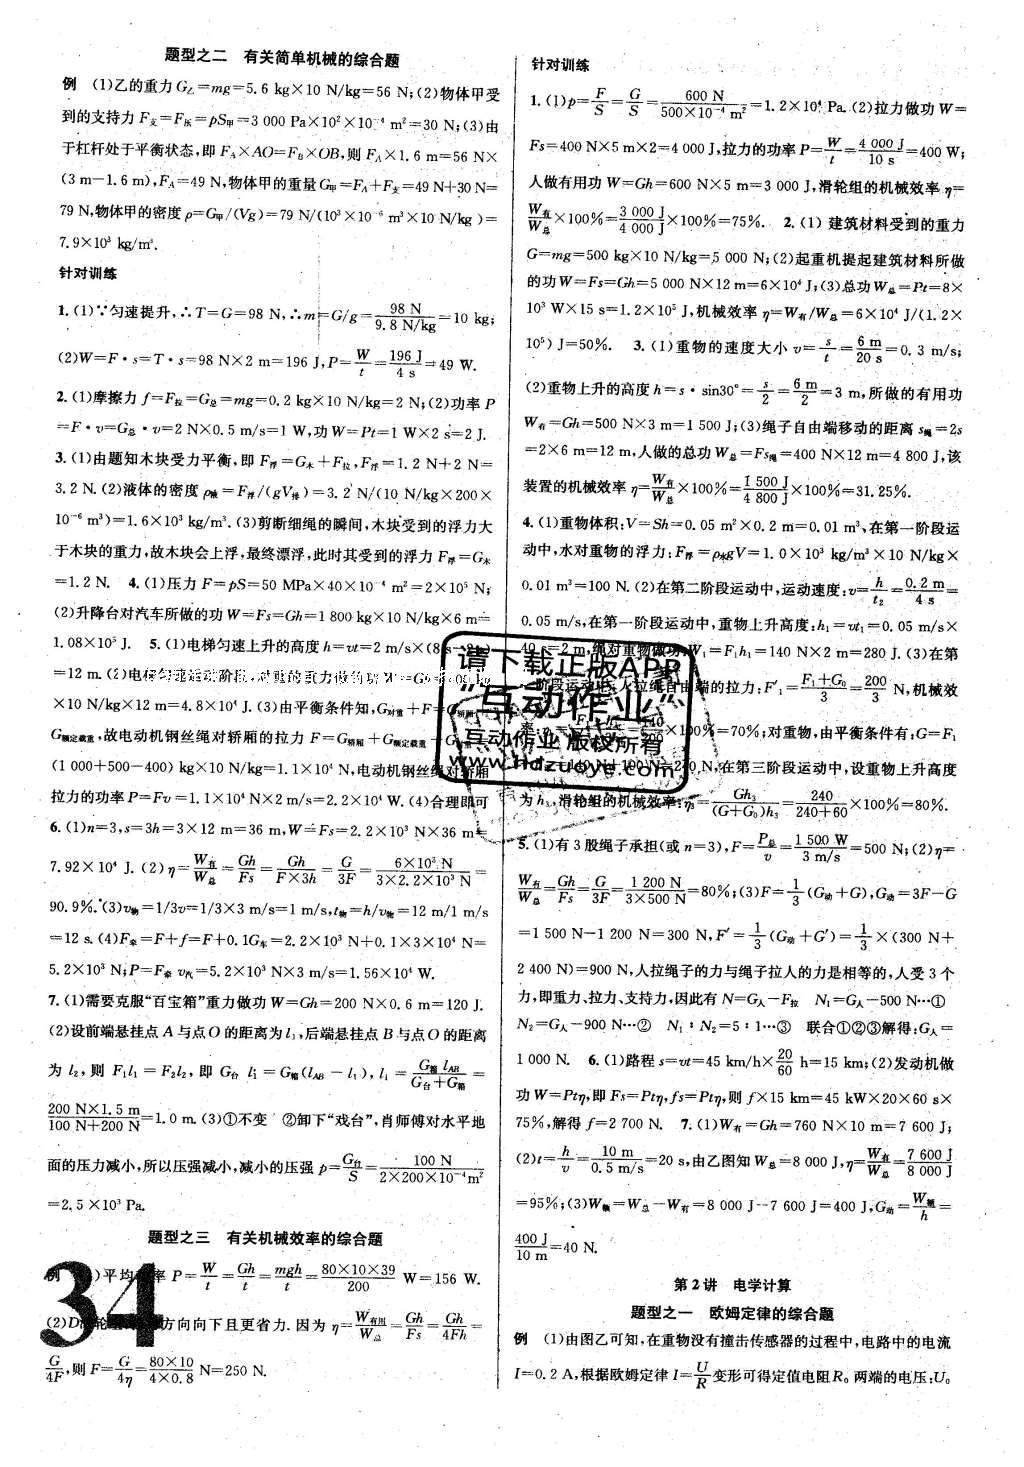 题型之二 有关简单机械的综合题
例 (1)乙的重力G乙=mg=5.6 kg×10 N/kg=56 N;(2)物体甲受
到的支持力F支=F压=pS甲=3 000 Pa×10²×10⁻⁴ m²=30 N;(3)由
于杠杆处于平衡状态,即FA×AO=FB×OB,则FA×1.6 m=56 N×
(3 m-1.6 m),FA=49 N,物体甲的重量G甲=FA+F支=49 N+30 N=
79 N,物体甲的密度ρ=G甲/(Vg)=79 N/(10³×10⁻⁶ m³×10 N/kg)=
7.9×10³ kg/m³.
针对训练
1.(1)∵匀速提升,∴T=G=98 N,∴m=G/g=98 N/9.8 N/kg=10 kg;
(2)W=F·s=T·s=98 N×2 m=196 J,P=W/t=196 J/4 s=49 W.
2.(1)摩擦力f=F拉=G总=mg=0.2 kg×10 N/kg=2 N;(2)功率P
=F·v=G总·v=2 N×0.5 m/s=1 W,功W=Pt=1 W×2 s=2 J.
3.(1)由题知木块受力平衡,即F浮=G木+F拉,F浮=1.2 N+2 N=
3.2 N.(2)液体的密度ρ液=F浮/(gV排)=3.2 N/(10 N/kg×200×
10⁻⁶ m³)=1.6×10³ kg/m³.(3)剪断细绳的瞬间,木块受到的浮力大
于木块的重力,故木块会上浮,最终漂浮,此时其受到的浮力F浮=G木
=1.2 N. 4.(1)压力F=pS=50 MPa×40×10⁻⁴ m²=2×10⁵ N;
(2)升降台对汽车所做的功W=Fs=Gh=1 800 kg×10 N/kg×6 m=
1.08×10⁵ J. 5.(1)电梯匀速上升的高度h=vt=2 m/s×(8
=12 m.(2)
×10 N/kg×12 m=4.8×10⁴ J.(3)由平衡条件知,G对重+F=
G额定载重,故电动机钢丝绳对轿厢的拉力F=G轿厢+G额定载重
(1 000+500-400) kg×10 N/kg=1.1×10⁴ N,电动机钢丝绳对轿厢
拉力的功率P=Fv=1.1×10⁴ N×2 m/s=2.2×10⁴ W.(4)合理即可
6.(1)n=3,s=3h=3×12 m=36 m,W=Fs=2.2×10³ N×36 m=
7.92×10⁴ J.(2)η=W有/W总=Gh/Fs=Gh/F×3h=G/3F=6×10³ N/3×2.2×10³ N=
90.9%.(3)v物=1/3v=1/3×3 m/s=1 m/s,t物=h/v物=12 m/1 m/s
=12 s.(4)F牵=F+f=F+0.1G车=2.2×10³ N+0.1×3×10⁴ N=
5.2×10³ N;P=F牵v汽=5.2×10³ N×3 m/s=1.56×10⁴ W.
7.(1)需要克服“百宝箱”重力做功W=Gh=200 N×0.6 m=120 J.
(2)设前端悬挂点A与点O的距离为l₁,后端悬挂点B与点O的距离
为l₂,则F₁l₁=F₂l₂,即G台l₁=G箱(lAB-l₁),l₁=G箱lAB/G台+G箱=
200 N×1.5 m/100 N+200 N=1.0 m.(3)①不变 ②卸下“戏台”,肖师傅对水平地
面的压力减小,所以压强减小,减小的压强p=G台/S=100 N/2×200×10⁻⁴m²
=2.5×10³ Pa.
题型之三 有关机械效率的综合题
例 P=W/t=Gh/t=mgh/t=80×10×39/200 W=156 W.
(2) 方向向下且更省力.因为η=W有用/W总=Gh/Fs=Gh/4Fh=
G/4F,则F=G/4η=80×10/4×0.8 N=250 N.
34
针对训练
1.(1)p=F/S=G/S=600 N/500×10⁻⁴ m²=1.2×10⁴ Pa.(2)拉力做功W=
Fs=400 N×5 m×2=4 000 J,拉力的功率P=W/t=4 000 J/10 s=400 W;
人做有用功W=Gh=600 N×5 m=3 000 J,滑轮组的机械效率η=
W有/W总×100%=3 000 J/4 000 J×100%=75%. 2.(1)建筑材料受到的重力
G=mg=500 kg×10 N/kg=5 000 N;(2)起重机提起建筑材料所做
的功W=Fs=Gh=5 000 N×12 m=6×10⁴ J;(3)总功W总=Pt=8×
10³ W×15 s=1.2×10⁵ J,机械效率η=W有/W总=6×10⁴ J/(1.2×
10⁵) J=50%. 3.(1)重物的速度大小v=s/t=6 m/20 s=0.3 m/s;
(2)重物上升的高度h=s·sin30°=s/2=6 m/2=3 m,所做的有用功
W有=Gh=500 N×3 m=1 500 J;(3)绳子自由端移动的距离s绳=2s
=2×6 m=12 m,人做的总功W总=Fs绳=400 N×12 m=4 800 J,该
装置的机械效率η=W有/W总×100%=1 500 J/4 800 J×100%=31.25%.
4.(1)重物体积:V=Sh=0.05 m²×0.2 m=0.01 m³,在第一阶段运
动中,水对重物的浮力:F浮=ρ水gV=1.0×10³ kg/m³×10 N/kg×
0.01 m³=100 N.(2)在第二阶段运动中,运动速度:v=h/t₂=0.2 m/4 s=
0.05 m/s,在第一阶段运动中,重物上升高度:h₁=vt₁=0.05 m/s×
40 s=2 m,绳对重物做功:W₁=F₁h₁=140 N×2 m=280 J.(3)在第
一阶段运动中,人拉绳自由端的拉力:F′₁=F₁+G₀/3=200/3 N,机械效
×100%=70%;对重物,由平衡条件有:G=F₁
=140 N+100 N=240 N,在第三阶段运动中,设重物上升高度
为h₃,滑轮组的机械效率:η₃=Gh₃/(G+G₀)h₃=240/240+60×100%=80%.
5.(1)有3股绳子承担(或n=3),F=P总/v=1 500 W/3 m/s=500 N;(2)η=
W有/W总=Gh/Fs=G/3F=1 200 N/3×500 N=80%;(3)F=1/3(G动+G),G动=3F-G
=1 500 N-1 200 N=300 N,F′=1/3(G动+G′)=1/3×(300 N+
2 400 N)=900 N,人拉绳子的力与绳子拉人的力是相等的,人受3个
力,即重力、拉力、支持力,因此有N=G人-F拉 N₁=G人-500 N…①
N₂=G人-900 N…② N₁∶N₂=5∶1…③ 联合①②③解得:G人=
1 000 N. 6.(1)路程s=vt=45 km/h×20/60 h=15 km;(2)发动机做
功W=Ptη,即Fs=Ptη,fs=Ptη,则f×15 km=45 kW×20×60 s×
75%,解得f=2 700 N. 7.(1)W有=Gh=760 N×10 m=7 600 J;
(2)t=h/v=10 m/0.5 m/s=20 s,由乙图知W总=8 000 J,η=W有/W总=7 600 J/8 000 J
=95%;(3)W额=W总-W有=8 000 J-7 600 J=400 J,G动=W额/h=
400 J/10 m=40 N.
第2讲 电学计算
题型之一 欧姆定律的综合题
例 (1)由图乙可知,在重物没有撞击传感器的过程中,电路中的电流
I=0.2 A,根据欧姆定律I=U/R变形可得定值电阻R₀两端的电压:U₀
请下载正版APP
“互动作业”
互动作业 版权所有
www.hdzuoye.com